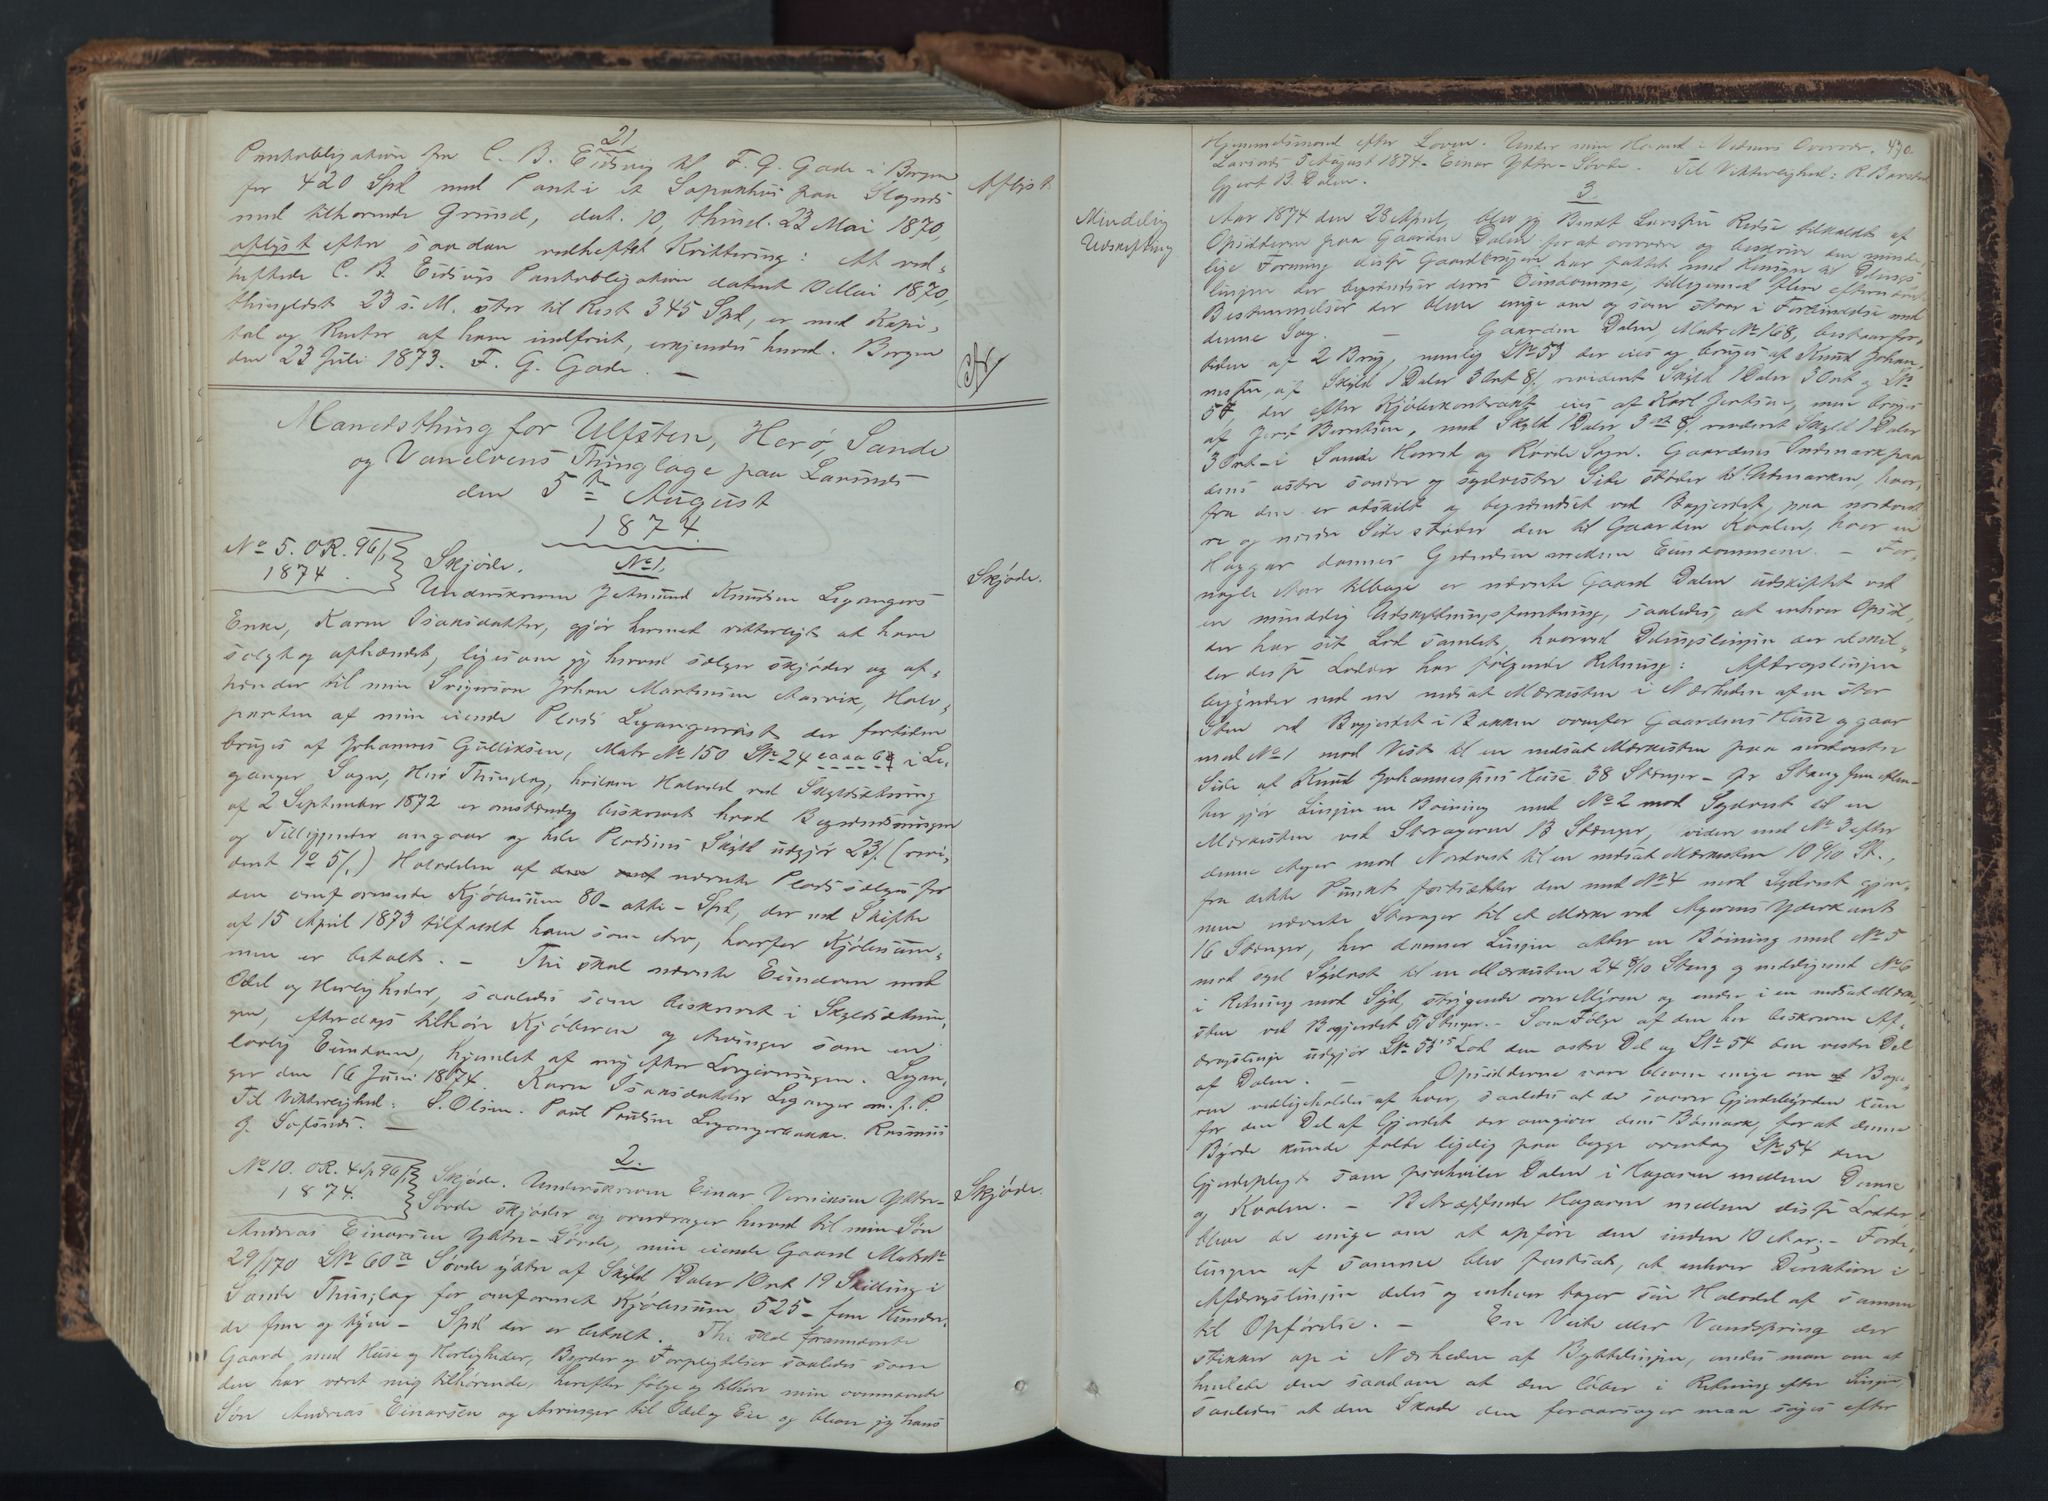 21
Pantobligation fra C. B. Eidsvig til F. G. Gade i Bergen
for 420 Spd med Pant i et Søpakhus paa
med tilhørende Grund, dat. 10, thinal. 23 Mai 1870,
aflyst efter saadan vedheftet Kvittering: At ved-
heftede C. B. Eidsvigs Pantobligation dateret 10 Mai 1870,
thinglæst 23 s. M. stor til Rest 345 Spd, er med Kapi-
tal og Renter af ham indfriet, erkjendes herved. Bergen
den 23 Juli 1873. F. G. Gade. —
Aflyst.
Maanedsthing for Ulfsten, Herø, Sande
og Vanelvens Thinglage paa Larsnæs
den 5te August
1874.
No 5. OR. 96/1
1874.
Skjøde.
No 1.
Skjøde.
Underskrevne Jetmund Knudsen Legangers
Enke, Karen Isaksdatter, gjør hermed vitterligt at have
solgt og afhændet, ligesom jeg herved sælger skjøder og af-
hænder til min Svigersøn Johan Martinsen Aarvik, Halv-
parten af min eiende Plads Legangerrøst der fortiden
bruges af Johannes Gulliksen, Matr No 150 LNr 24 i Le-
ganger Sogn, Herø Thinglag, hvilken Halvdel ved Skyldsætning
af 2 September 1872 er omstændig beskrevet hvad Begrændsninger
og Tilliggender angaar og hele Pladsens Skyld udgjør 23 /. (revi-
deret 1 o 5 /.) Halvdelen af nævnte Plads sælges for
den omforenede Kjøbesum 80 - otti - Spd, der ved Skifte
af 15 April 1873 tilfaldt ham som Arv, hvorfor Kjøbesum-
men er betalt. — Thi skal nævnte Eiendom med
Odel og Herligheder, saaledes som beskrevet i Skyldsætnin-
gen, efterdags tilhøre Kjøberen og Arvinger som en
lovlig Eiendom, hjemlet af mig efter Lovgivningen. Legan-
ger den 16 Juni 1874. Karen Isaksdatter Leganger m. f. P.
Til Vitterlighed: S. Olsen. Paul Paulsen Legangerbakke. Rasmus
J.
No 10. OR. 4 Sp 96/1
1874.
2.
Skjøde.
Skjøde. Underskrevne Einar Vernicksen Yttre-
Sørde skjøder og overdrager herved til min Søn
Andreas Einarsen Yttre-Sørde, min eiende Gaard MatrNr
29/170 LNr 60a Sørde ydtre af Skyld 1 Daler 1 Ort 19 Skilling i
Sande Thinglag for omforenet Kjøbesum 525 - fem Hundre-
de fem og tyve - Spd der er betalt. Thi skal forannævnte
Gaard med Huse og Herligheder, Byrder og Forpligtelser saaledes som
den har været mig tilhørende, herefter følge og tilhøre min ovennævnte
Søn Andreas Einarsen og Arvinger til Odel og Eie og bliver jeg hans
Hjemmelsmand efter Loven. Under min Haand i Vidners Overvær.
430.
Larsnæs 5 August 1874. Einar Ydtre-Sørde. Til Vitterlighed: R. Barstad
Gjert B. Dalen.
3.
Mindelig
Udskiftning.
Aar 1874 den 28 April, blev jeg Bendt Larssen Redse tilkaldt af
Opsidderne paa Gaarden Dalen for at overvære og beskrive den minde-
lige Forening disse Gaardbrugere har fattet med Hensyn til Delings-
linjen der begrændser deres Eiendomme, tilligemed flere efternævnte
Bestemmelser der bleve enige om og som staar i Forbindelse med
denne Sag. — Gaarden Dalen, Matr No 168, bestaar for-
tiden af 2 Brug, nemlig LNo 53 der eies og bruges af Knud Johan-
nessen, af Skyld 1 Daler 3 Ort 8 /. revideret Skyld 1 Daler 3 Ort og LNo
54, der efter Kjøbekontrakt eies af Karl Jertsen, men bruges
af Jert Berntsen, med Skyld 1 Daler 3 Ort 8 /. revideret Skyld 1 Daler
3 Ort - i Sande Herred og Rovde Sogn. Gaardens Indmark paa
dens østre søndre og sydvestre Side støder til Udmarken, hvor-
fra den er adskilt og begrændset ved Bøgjerdet, paa nordvest-
re og nordre Side støder den til Gaarden Kvalen, hvor en
Haggar dannes Grændsen mellem Eiendommene. — For
nogle Aar tilbage er nævnte Gaard Dalen udskiftet ved
en mindelig Udskiftningsforretning, saaledes, at enhver Opsid-
der har sit Lod samlet, hvorved Delingslinjen der adskil-
ler disse Lodder har følgende Retning: Afdragslinjen
begynder ved en nedsat Mærkesten i Nærheden af en stor
Sten ved Bøgjerdet i Bakken ovenfor Gaardens Huse og gaar
med No 1 mod Vest til en nedsat Mærkesten paa nordvestre
Side af Knud Johannessens Huse 38 Stænger - pr Stang fem Alen -
her gjør Linjen en Bøining med No 2 mod Sydvest til en
Mærkesten ved Storageren 13 Stænger, videre med No 3 efter
denne Ager mod Nordvest til en nedsat Mærkesten 10 9/10 St.,
fra dette Punkt fortsætter den med No 4 mod Sydvest gjen-
nem nævnte Storager til et Mærke ved Agerens Yderkant
16 Stænger, her danner Linjen atter en Bøining med No 5
mod syd Sydvest til en Mærkesten 24 8/10 Stang og endeligmed No 6
i Retning mod Syd, strygende over Myren og ender i en nedsat Mærke-
sten ved Bøgjerdet 51 Stænger. — Som Følge af den her beskrevne Af-
dragslinje udgjør LNo 53's Lod den østre Del og LNo 54 den vestre Del
af Dalen. — Opsidderne vare bleven enige om at Bøga-
ren vedligeholdes af hver, saaledes at de svarer Gjerdebyrden kun
for den Del af Gjerdet der omgiver dens Bømark, for at denne
Byrde kunde falde lydig paa begge overtog LNo 54 den
Gjerdepligt som paahviler Dalen i Hagaren mellem Denne
og Kvalen. — Betræffende Hagaren mellem disse Lodder,
bleve de enige om at opføre den inden 10 Aar; — Forde-
lingen af samme blev fastsat, at enhver Direktion i
Afdragslinjen deles og enhver tager sin Halvdel af samme
til Opførelse. — En Veite eller Vandspring der
stikker op i Nærheden af Byttelinjen, enedes man om at
henlede den saadan at den løber i Retning efter Linjen,
saaledes at den Skade den foraarsager maa søges efter